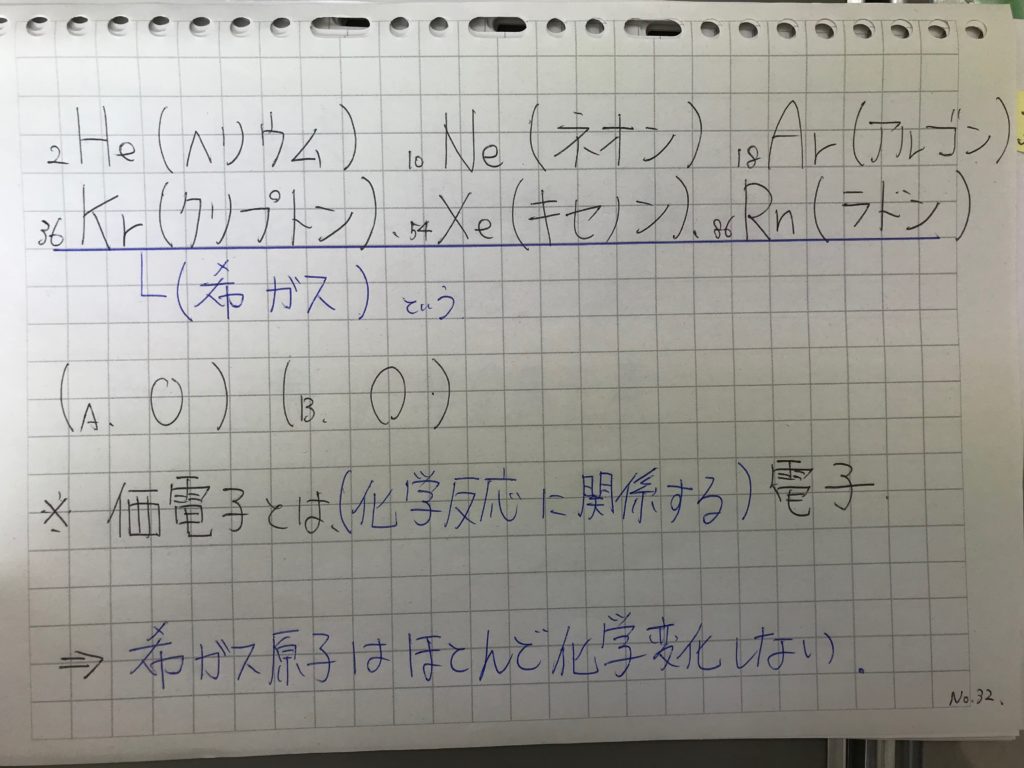 2He(ヘリウム) 10Ne(ネオン) 18Ar(アルゴン)
36Kr(クリプトン)、54Xe(キセノン)、86Rn(ラドン)
(希ガス)という
(A. 0) (B. 0)
※ 価電子とは、(化学反応に関係する)電子.
⇒ 希ガス原子はほとんど化学変化しない.
No.32.